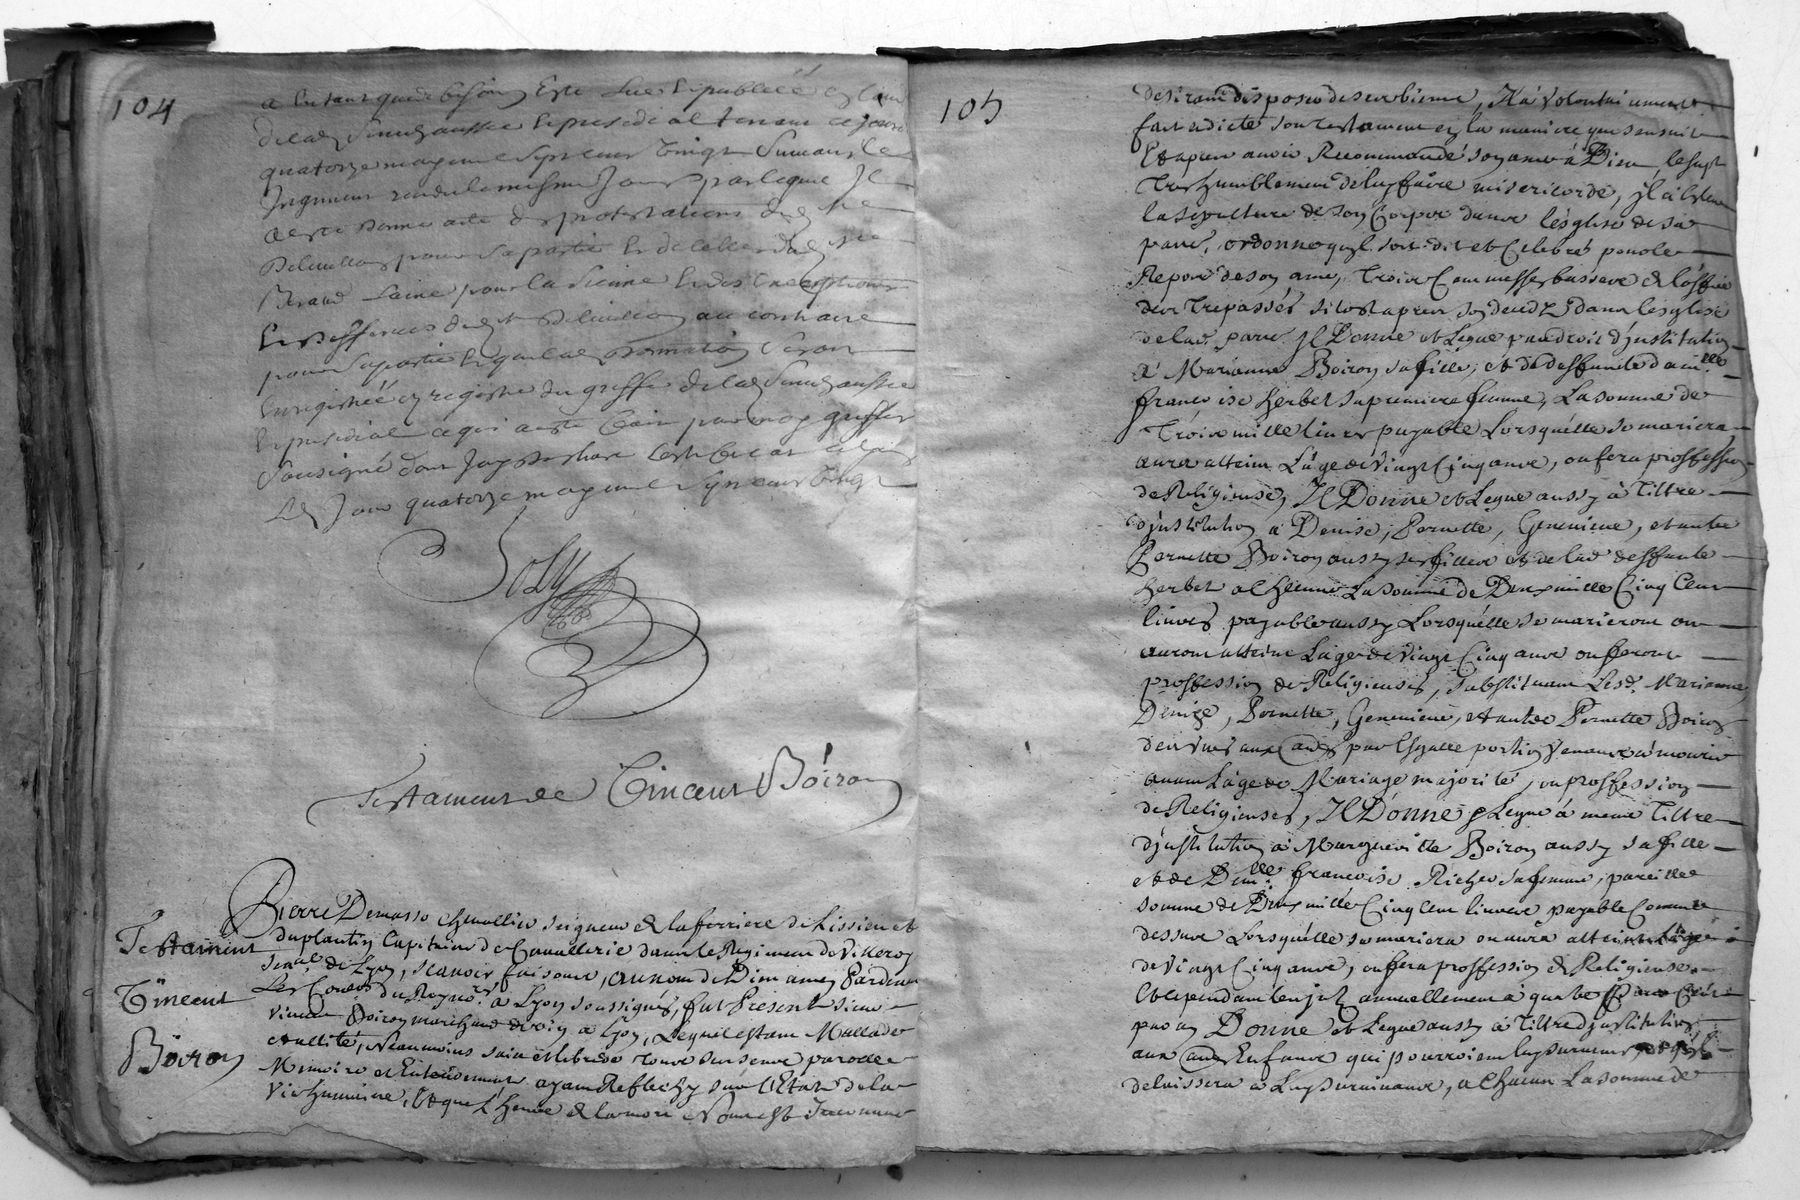 104
a leur besoin Este Lue et publiéé
de lad. Seneschaussée et presidial tenant ce jour
quatorze may mil sept cent vingt
Jugement rendu le mesme Jour par lequel Il
a esté donné acte des protestations dud. Me
pour sa partie et de celles dud. Me
Beraud Laine pour la sienne et des Exceptions
et deffences dud. Me au contraire
pour sa partie et que lad. donnation seroit
Enregistréé es registres du greffe de lad. Seneschaussée
et presidial ce qui a esté par moy greffier
Sousigné dont Jay
Led. Jour quatorze may mil sept cent vingt
Testament de Vincent Böiron
Testament
Vincent
Böiron
Pierre Demasso chevallier seigneur de la ferriere de Lissieu et
duplantin Capitaine de Cavallerie dans le Regiment de Villeroy
senal. de Lyon, scavoir faisons, qu'au nom de Dieu amen Pardevant
Les Conrs du Roy nores. a Lyon soussignés, fut Present sieur
vincent Boiron marchand a Lyon, Lequel estant Mallade
et allité, Neanmoins sain et libre de tous ses sens parolle
Memoire et Entendement ayant Reflechy sur l'Etat de la
vie humaine, Et que l'heure de la mort Nous est Inconnue
105
desirant disposer de ses biens, Il a volontairement
fait et dicté son testament en la maniere que sensuit
Et apres avoir Recommandé son ame à Dieu, le supt.
tres humblement de luy faire misericorde, Il a Esleu
la sepulture de son Corps dans l'esglise de sa
parre, ordonne quil soit dit et Celebré pour le
Repos de son ame, trois Cent messes basses de l'office
des trepassés sitost apres son decedz dans lesglise
de lad. parre Il Donne et Legue par droit d'jnstitution
à Marianne Boiron sa fille, et de deffunte damlle
francoise herbet sa premiere femme, La somme de
trois mille livres payable Lorsqu'elle se mariera
aura atteint L'age de vingt Cinq ans, ou fera proffession
de Religieuse, Il Donne et Legue aussy à tiltre
d'jnstitution a Denise, Pernette, Genevieve, et autre
Pernette Boiron aussy ses filles et de lad. deffunte
herbet a chacune La somme de Deux mille Cinq Cent
livres payable aussy Lorsqu'elle se marieront ou
auront atteint L'age de vingt Cinq ans ou feront
proffession de Religieuses, substituant Lesd. Marianne
Denize, Pernette, Genevieve, et autre Pernette Boiron
des unes aux autres par Esgalle portion venant à mourir
avant L'age de Mariage majorité, ou proffession
de Religieuses, Il Donne & Legue à meme tiltre
d'jnstitution à Margueritte Boiron aussy sa fille
et de Damlle francoise Richer sa femme, pareille
somme de Deux mille Cinq Cent livres payable Comme
dessus Lorsqu'elle se mariera ou aura atteint L'age
de vingt Cinq ans, ou fera proffession de Religieuse
Donne et Legue aussy à tiltre d'jnstitution
aux autres Enfans qui pourroient luy survenir
delaissera à Luy survivans, a Chacun La somme de